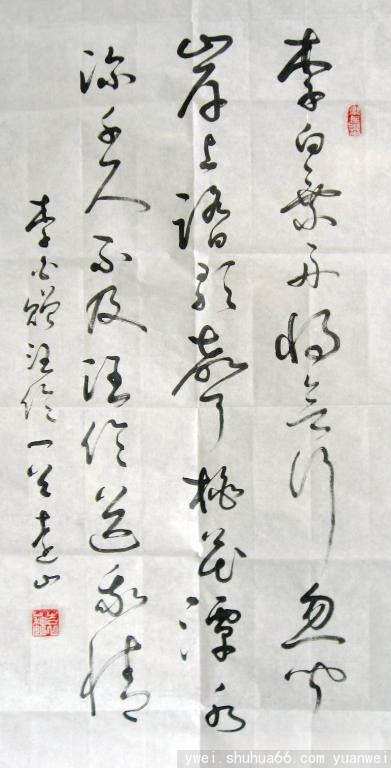 李白乘舟将欲行忽闻
岸上踏歌声桃花潭水
深千尺不及汪伦送我情
李白赠汪伦一首 山
ywei.shuhua66.com yuanwei